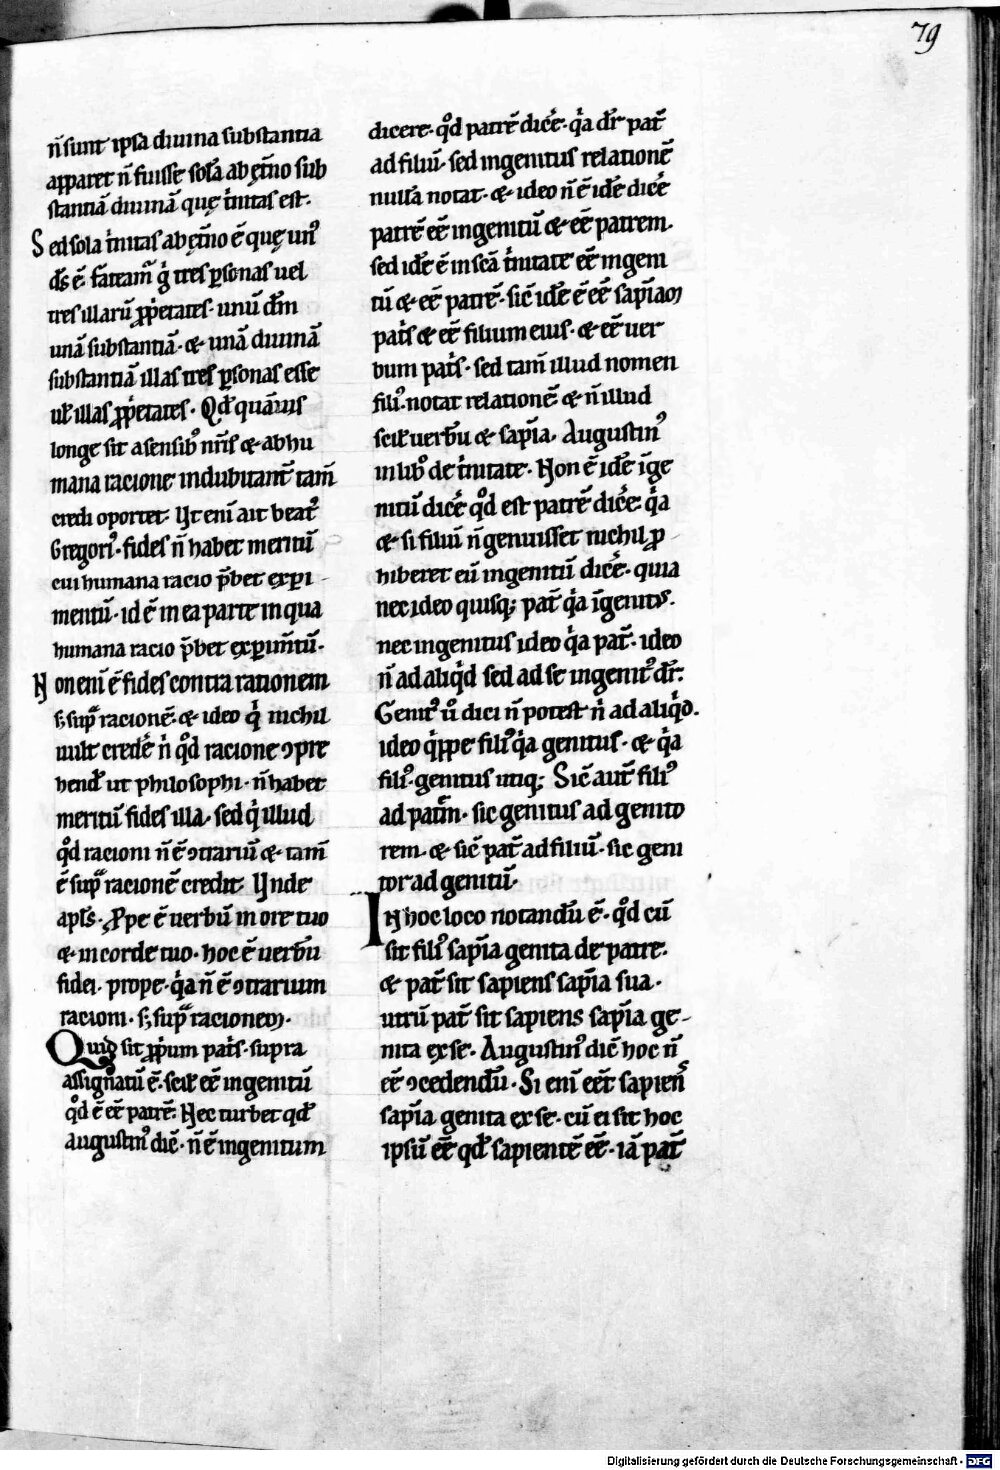 79
n̄ sunt ipsa diuina substantia
apparet n̄ fuisse sola᷒ ab ęt̄no sub
stantiā diuinā que᷒ t̓nitas est.
Sed sola t̓nitas ab ęt̄no ē quę un᷒
d̄s ē. fateam᷒ g̓ tres ꝑsonas uel
tres illarū ꝓp̓etates. unū d̄m
unā substantiā. & unā diuinā
substantiā illas tres ꝑsonas esse
ul̓ illas ꝓp̓etates. Qd̓ quāuis
longe sit a sensib᷒ nr̄is & ab hu
mana racione indubitant̓ tam̄
credi oportet. Ut eni᷒ ait beat᷒
Gregori᷒. fides n̄ habet meritū
cui humana racio p̄bet exꝑi
mentū. id ē in ea parte in qua
humana racio p̄bet exꝑim̄tū.
Non eni᷒ ē fides contra rationem
s; sup̄ racionē. & ideo q̓ nichil
uult crede᷒ n̓ qd̓ racione ꝯpre
hend̓ ut philosophi. n̄ habet
meritū fides illa. sed q̓ illud
qd̓ racioni n̄ ē ꝯtrariū & tam̄
ē sup̄ racionē credit. Unde
apl̄s. Ꝓpe ē uerbū in ore tuo
& in corde tuo. hoc ē uerbū
fidei. prope. q̓a n̄ ē ꝯtrarium
racioni. s; sup̄ racionem.
Quid sit ꝓp̓um pat̓s. supra
assignatū ē. scil̓ eē ingenitū
qd̓ ē eē patrē. Nec turbet qd̓
augustin᷒ dic̄. n̄ ē ingenitum
dicere. qd̓ patrē dic̓e. q̓a dr̄ pat̄
ad filiū. sed ingenitus relationē
nullā notat. & ideo n̄ ē idē dic̓e
patrē eē ingenitū & eē patrem.
sed idē ē in sc̄a t̓nitate eē ingeni
tū & eē patrē. sic̄ idē ē eē sapīam
pat̓s & eē filium eius. & eē uer
bum pat̓s. sed tam̄ illud nomen
fili᷒. notat relationē & n̄ illud
scil̓ uerbū & sapīa. Augustin᷒
in lib᷒ de t̓nitate. Non ē idē īge
nitū dic̓e qd̓ est patrē dic̓e. q̓a
& si filiū n̄ genuisset nichil ꝓ
hiberet eū ingenitū dic̓e. quia
nec ideo quisq; pat̄ q̓a īgenitus.
nec ingenitus ideo q̓a pat̄. ideo
n̄ ad aliq̓d sed ad se ingenit᷒ dr̄.
Genit᷒ u᷒ dici n̄ potest n̓ ad aliq̓d.
ideo q̓ppe fili᷒ q̓a genitus. & q̓a
fili᷒. genitus utiq; Sic̄ aut̄ fili᷒
ad patrē. sic genitus ad genito
rem. & sic̄ pat̄ ad filiū. sic geni
tor ad genitū.
In hoc loco notandū ē. qd̓ cū
sit fili᷒ sapīa genita de patre.
& pat̄ sit sapiens sapīa sua.
utrū pat̄ sit sapiens sapīa ge-
nita ex se. Augustin᷒ dic̄ hoc n̄
eē ꝯcedendū. Si eni᷒ eēt sapien̄s
sapīa genita ex se. cū ei sit hoc
ipsū eē qd̓ sapientē eē. iā pat̄
Digitalisierung gefördert durch die Deutsche Forschungsgemeinschaft - DFG